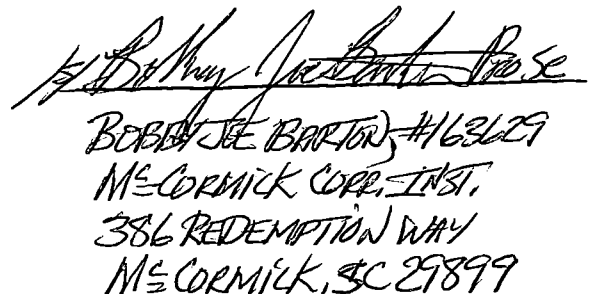 /s/ Bobby Joe Barton Pro, se
BOBBY JOE BARTON, #163629
McCORMICK CORR. INST.
386 REDEMPTION WAY
McCORMICK, SC 29899